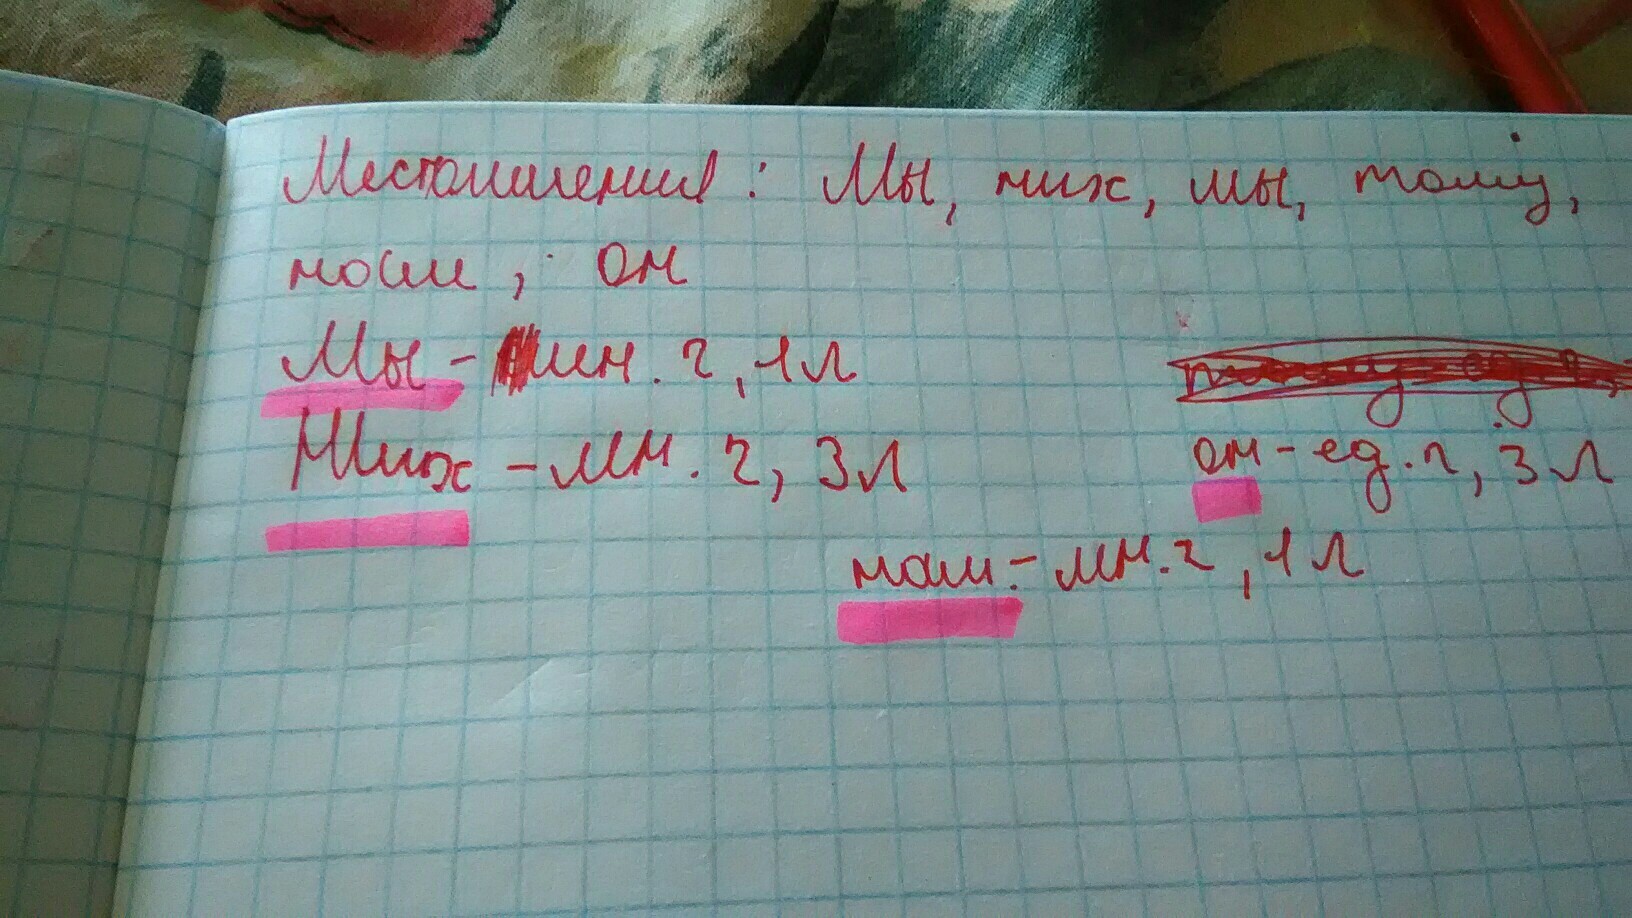 Местоимения: Мы, них, мы, тому,
нами, он
Мы - мн. ч, 1л
Них - мн. ч, 3л
он - ед. ч, 3л
нам - мн. ч, 1л